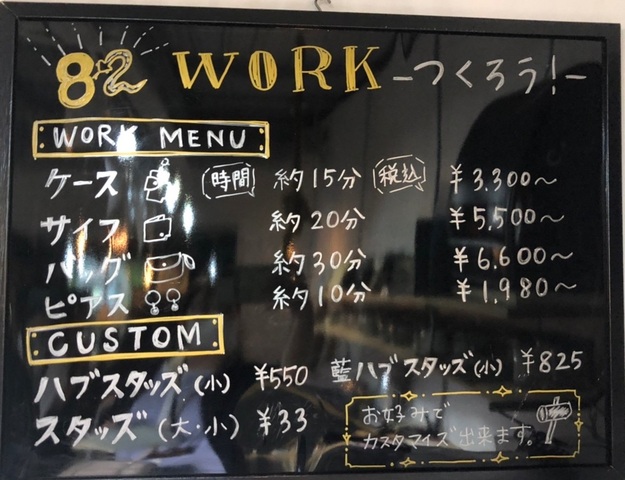 82 WORK -つくろう!-
WORK MENU
ケース 時間 約15分 税込 ¥3,300〜
サイフ 約20分 ¥5,500〜
バッグ 約30分 ¥6,600〜
ピアス 約10分 ¥1,980〜
CUSTOM
ハブスタッズ(小) ¥550 藍ハブスタッズ(小) ¥825
スタッズ(大・小) ¥33
お好みで
カスタマイズ出来ます。